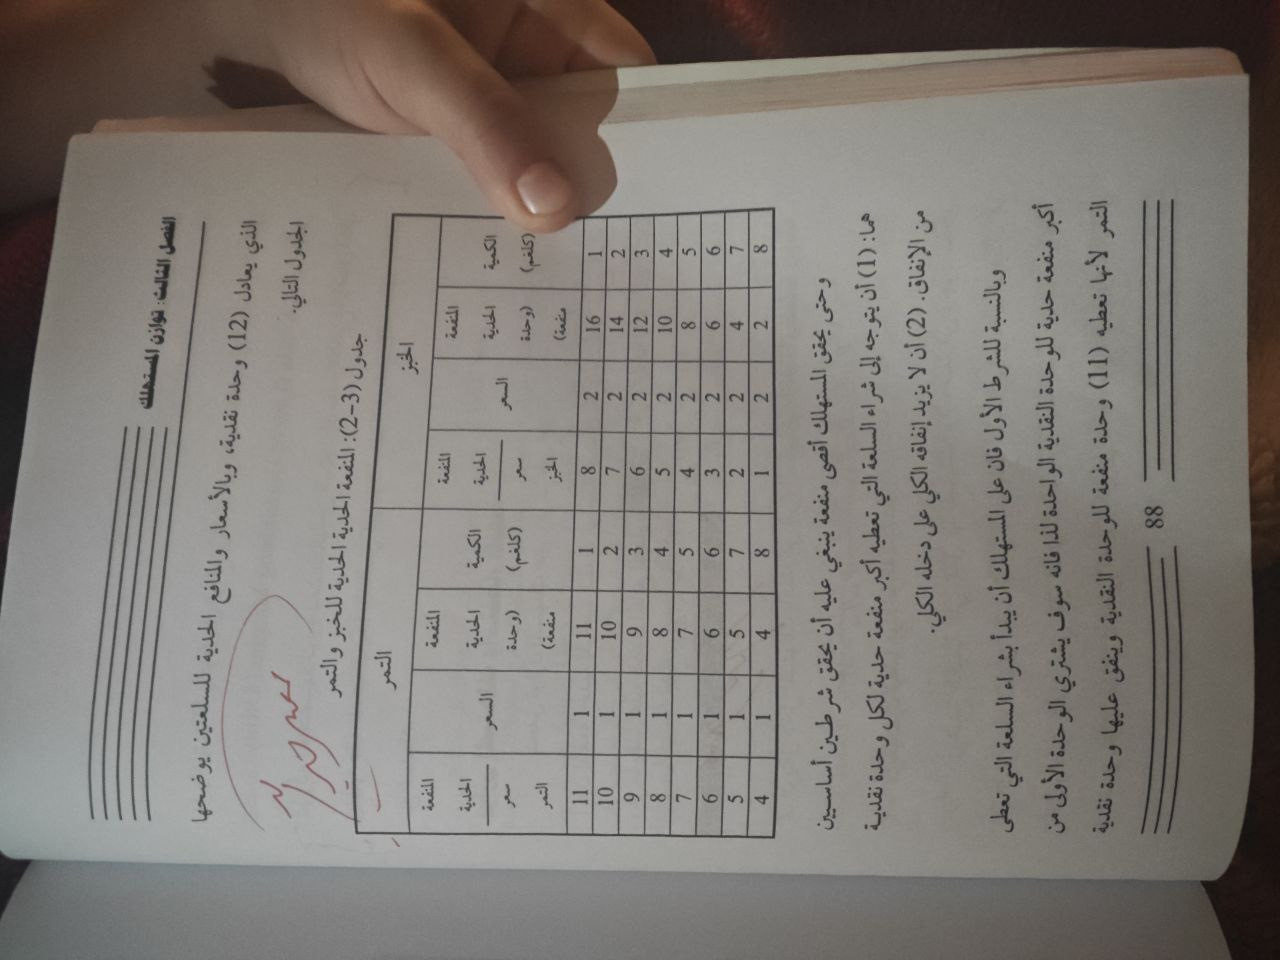 الفصل الثالث: توازن المستهلك
الذي يعادل (12) وحدة نقدية، وبالأسعار والمنافع الحدية للسلعتين يوضحها
الجدول التالي.
جدول (3-2): المنفعة الحدية الحدية للخبز والتمر
الخبز التمر
الكمية (كلغم) المنفعة الحدية (وحدة منفعة) السعر المنفعة الحدية سعر الخبز الكمية (كلغم) المنفعة الحدية (وحدة منفعة) السعر المنفعة الحدية سعر التمر
1 16 2 8 1 11 1 11
2 14 2 7 2 10 1 10
3 12 2 6 3 9 1 9
4 10 2 5 4 8 1 8
5 8 2 4 5 7 1 7
6 6 2 3 6 6 1 6
7 4 2 2 7 5 1 5
8 2 2 1 8 4 1 4
وحتى يحقق المستهلك أقصى منفعة ينبغي عليه أن يحقق شرطين أساسيين
هما: (1) أن يتوجه إلى شراء السلعة التي تعطيه أكبر منفعة حدية لكل وحدة نقدية
من الإنفاق. (2) أن لا يزيد إنفاقه الكلي على دخله الكلي.
وبالنسبة للشرط الأول فان على المستهلك أن يبدأ بشراء السلعة التي تعطى
أكبر منفعة حدية للوحدة النقدية الواحدة لذا فانه سوف يشتري الوحدة الأولى من
التمر لأنها تعطيه (11) وحدة منفعة للوحدة النقدية وينفق عليها وحدة نقدية
88